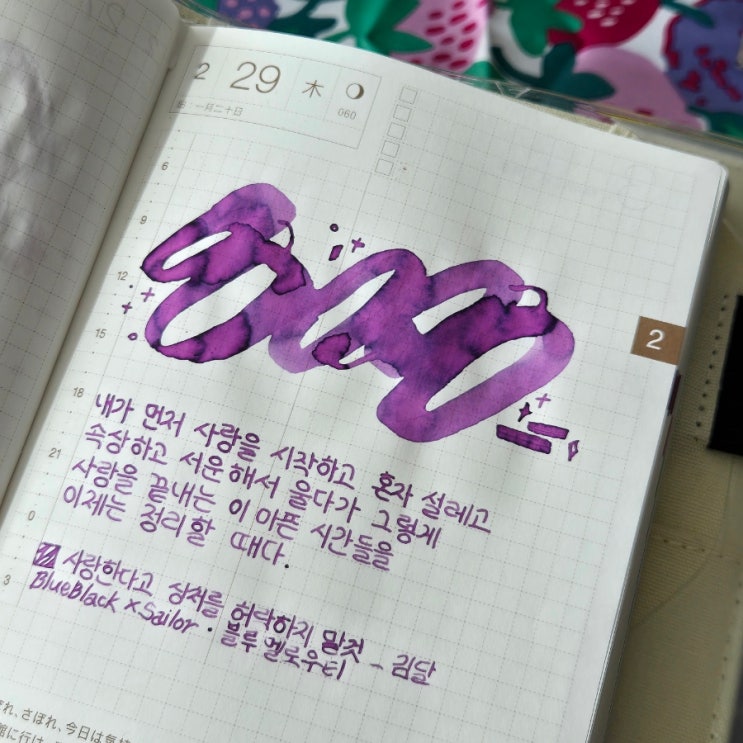 2 29 木
旧:一月二十日
060
6
9
12
15
2
18
21
0
3
내가 먼저 사랑을 시작하고 혼자 설레고
속상하고 서운해서 울다가 그렇게
사랑을 끝내는 이 아픈 시간들을
이제는 정리할 때다.
사랑한다고 상처를 허락하지 말것 - 김달
BlueBlack × Sailor · 블루 멜로우티
れ、さぼれ、今日は気
館に行け、